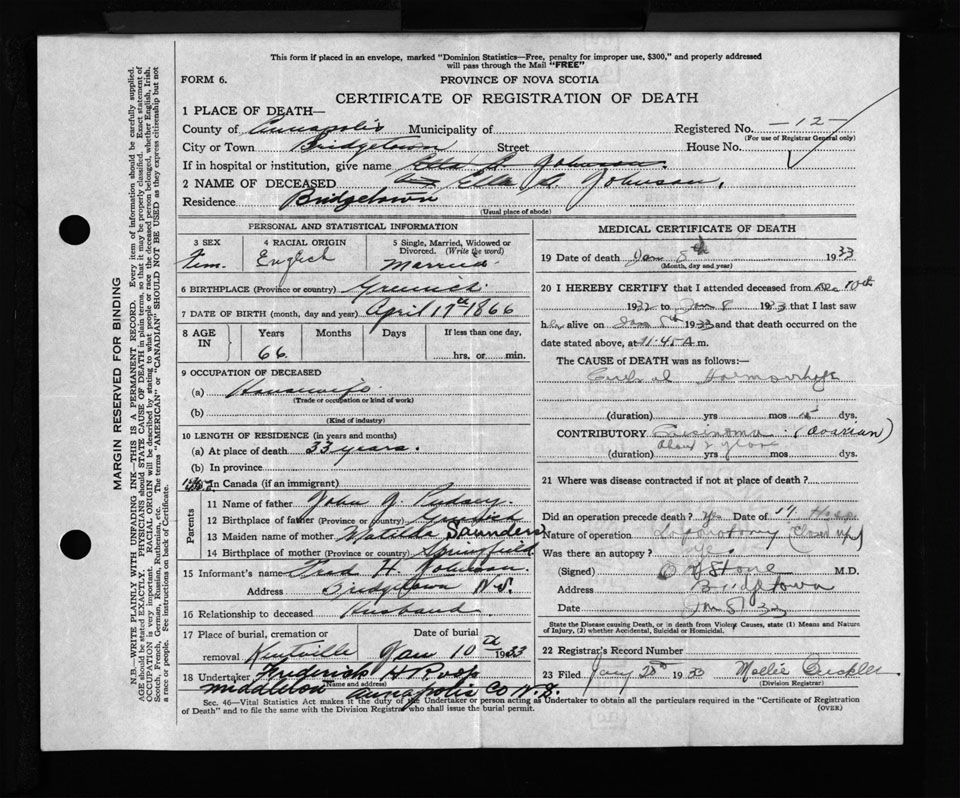 This form if placed in an envelope, marked "Dominion Statistics—Free, penalty for improper use, $300," and properly addressed
will pass through the Mail "FREE"
FORM 6.
PROVINCE OF NOVA SCOTIA
CERTIFICATE OF REGISTRATION OF DEATH
1 PLACE OF DEATH—
County of Annapolis Municipality of Registered No. —12—
(For use of Registrar General only)
City or Town Bridgetown Street House No.
If in hospital or institution, give name Johnson
2 NAME OF DECEASED Ella Johnson.
Residence Bridgetown
(Usual place of abode)
PERSONAL AND STATISTICAL INFORMATION
3 SEX 4 RACIAL ORIGIN 5 Single, Married, Widowed or
Divorced. (Write the word)
Fem. English Married
6 BIRTHPLACE (Province or country) Greenwich
7 DATE OF BIRTH (month, day and year) April 17th 1866
8 AGE IN Years Months Days If less than one day,
66 hrs. or min.
9 OCCUPATION OF DECEASED
(a) Housewife
(Trade or occupation or kind of work)
(b)
(Kind of industry)
10 LENGTH OF RESIDENCE (in years and months)
(a) At place of death 33 years.
(b) In province
(c) In Canada (if an immigrant)
Parents
11 Name of father John
12 Birthplace of father (Province or country)
13 Maiden name of mother Matilda Saunders
14 Birthplace of mother (Province or country) Springfield
15 Informant's name Fred H Johnson
Address Bridgetown N.S.
16 Relationship to deceased Husband
17 Place of burial, cremation or Date of burial
removal Kentville Jan 10 1933
18 Undertaker Frederick H
(Name and address)
Middleton Annapolis Co N.S.
MEDICAL CERTIFICATE OF DEATH
19 Date of death Jan 8th 1933
(Month, day and year)
20 I HEREBY CERTIFY that I attended deceased from
1932 to Jan 8 1933 that I last saw
her alive on Jan 8th 1933 and that death occurred on
date stated above, at 11.45 A m.
The CAUSE of DEATH was as follows:—
Haemorrhage
(duration) yrs mos dys.
CONTRIBUTORY (ovarian)
(duration) yrs mos dys.
21 Where was disease contracted if not at place of death?
Did an operation precede death? Yes Date of
Nature of operation Laparotomy
Was there an autopsy?
(Signed) M.D.
Address Bridgetown
Date Jan 8
State the Disease causing Death, or in death from Violent Causes, state (1) Means and Nature
of Injury, (2) whether Accidental, Suicidal or Homicidal.
22 Registrar's Record Number
23 Filed Jany 20th 1933 Mollie
(Division Registrar)
Sec. 46—Vital Statistics Act makes it the duty of the Undertaker or person acting as Undertaker to obtain all the particulars required in the "Certificate of Registration
of Death" and to file the same with the Division Registrar who shall issue the burial permit. (OVER)
MARGIN RESERVED FOR BINDING
N.B.—WRITE PLAINLY WITH UNFADING INK—THIS IS A PERMANENT RECORD. Every item of information should be carefully supplied.
AGE should be stated EXACTLY. PHYSICIANS should STATE CAUSE OF DEATH in plain terms, so that it may be properly classified. Exact statement of
OCCUPATION is very important. RACIAL ORIGIN will be described by stating to what people or race the deceased person belonged, whether English, Irish,
Scotch, French, German, Russian, Ruthenian, etc. The terms "AMERICAN" or "CANADIAN" SHOULD NOT BE USED as they express citizenship but not
a race or people. See instructions on back of Certificate.